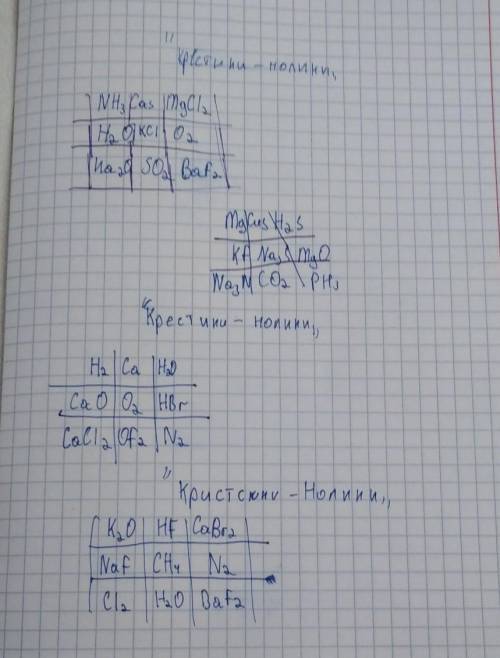 "Крестики-нолики"
NH3 CaS MgCl2
H2O KCl O2
Na2O SO2 BaF2
Mg CuS H2S
KF Na3N MgO
Na3N CO2 PH3
"Крестики-нолики"
H2 Ca H2O
CaO O2 HBr
CaCl2 OF2 N2
"Кристсики-Нолики"
K2O HF CaBr2
NaF CH4 N2
Cl2 H2O BaF2